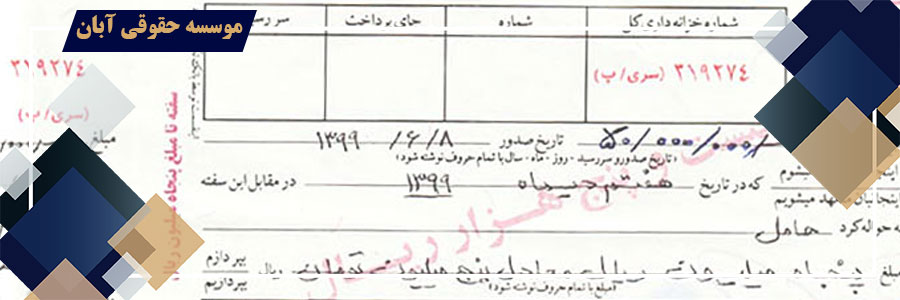 موسسه حقوقی آبان
شماره خزانه‌داری کل
شماره
جای پرداخت
سر رسید
۳۱۹۲۷۴ (سری/ب)
۳۱۹۲۷۴
(سری/ب)
سفته تا مبلغ پنجاه میلیون ریال
۵۰/۰۰۰/۰۰۰/ تاریخ صدور ۱۳۹۹/۶/۸
(تاریخ صدور و سررسید - روز - ماه - سال با تمام حروف نوشته شود)
که در تاریخ هفتم دیماه ۱۳۹۹ در مقابل این سفته
متعهد میشویم
به حواله کرد حامل
بیست و پنج هزار ریال
مبلغ پنجاه میلیون ریال معادل پنج میلیون تومان ریال بپردازم
(مبلغ با تمام حروف نوشته شود) بپردازیم
مبلغ